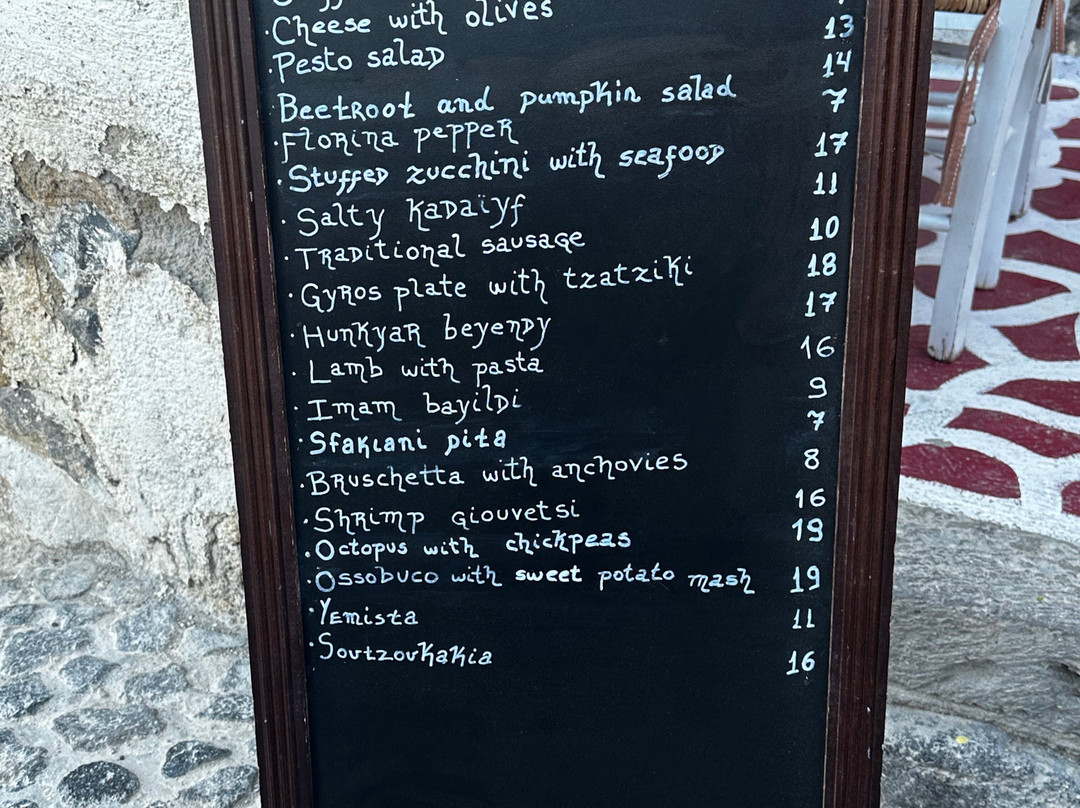 ·Cheese with olives
·Pesto salad 13
Beetroot and pumpkin salad 14
·Florina pepper 7
·Stuffed zucchini with seafood 17
·Salty kadaïyf 11
·Traditional sausage 10
·Gyros plate with tzatziki 18
·Hunkyar beyendy 17
·Lamb with pasta 16
·Imam bayildi 9
·Sfakiani pita 7
·Bruschetta with anchovies 8
·Shrimp giouvetsi 16
·Octopus with chickpeas 19
·Ossobuco with sweet potato mash 19
·Yemista 11
·Soutzoukakia 16